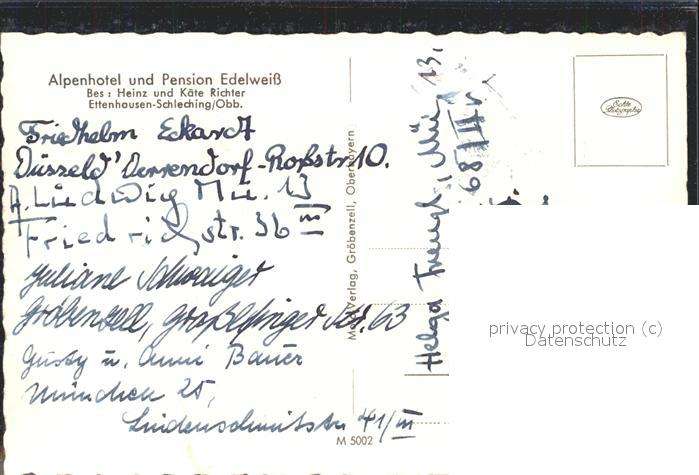 Alpenhotel und Pension Edelweiß
Bes: Heinz und Käte Richter
Ettenhausen-Schleching/Obb.
Friedhelm Eckardt
Düsseld' Derrendorf-Roßstr 10.
A. Ludwig Mü. 13
Friedrichstr. 36 III
Juliane Schwaiger
Gröbenzell, Graßlfinger Str. 63
Gusty u. Anni Bauer
München 25,
Lindenschmitstr 41/III
M 5002
Verlag, Gröbenzell, Oberbayern
Helga Mü, 13,
68
Echte Photographie
privacy protection (c)
Datenschutz